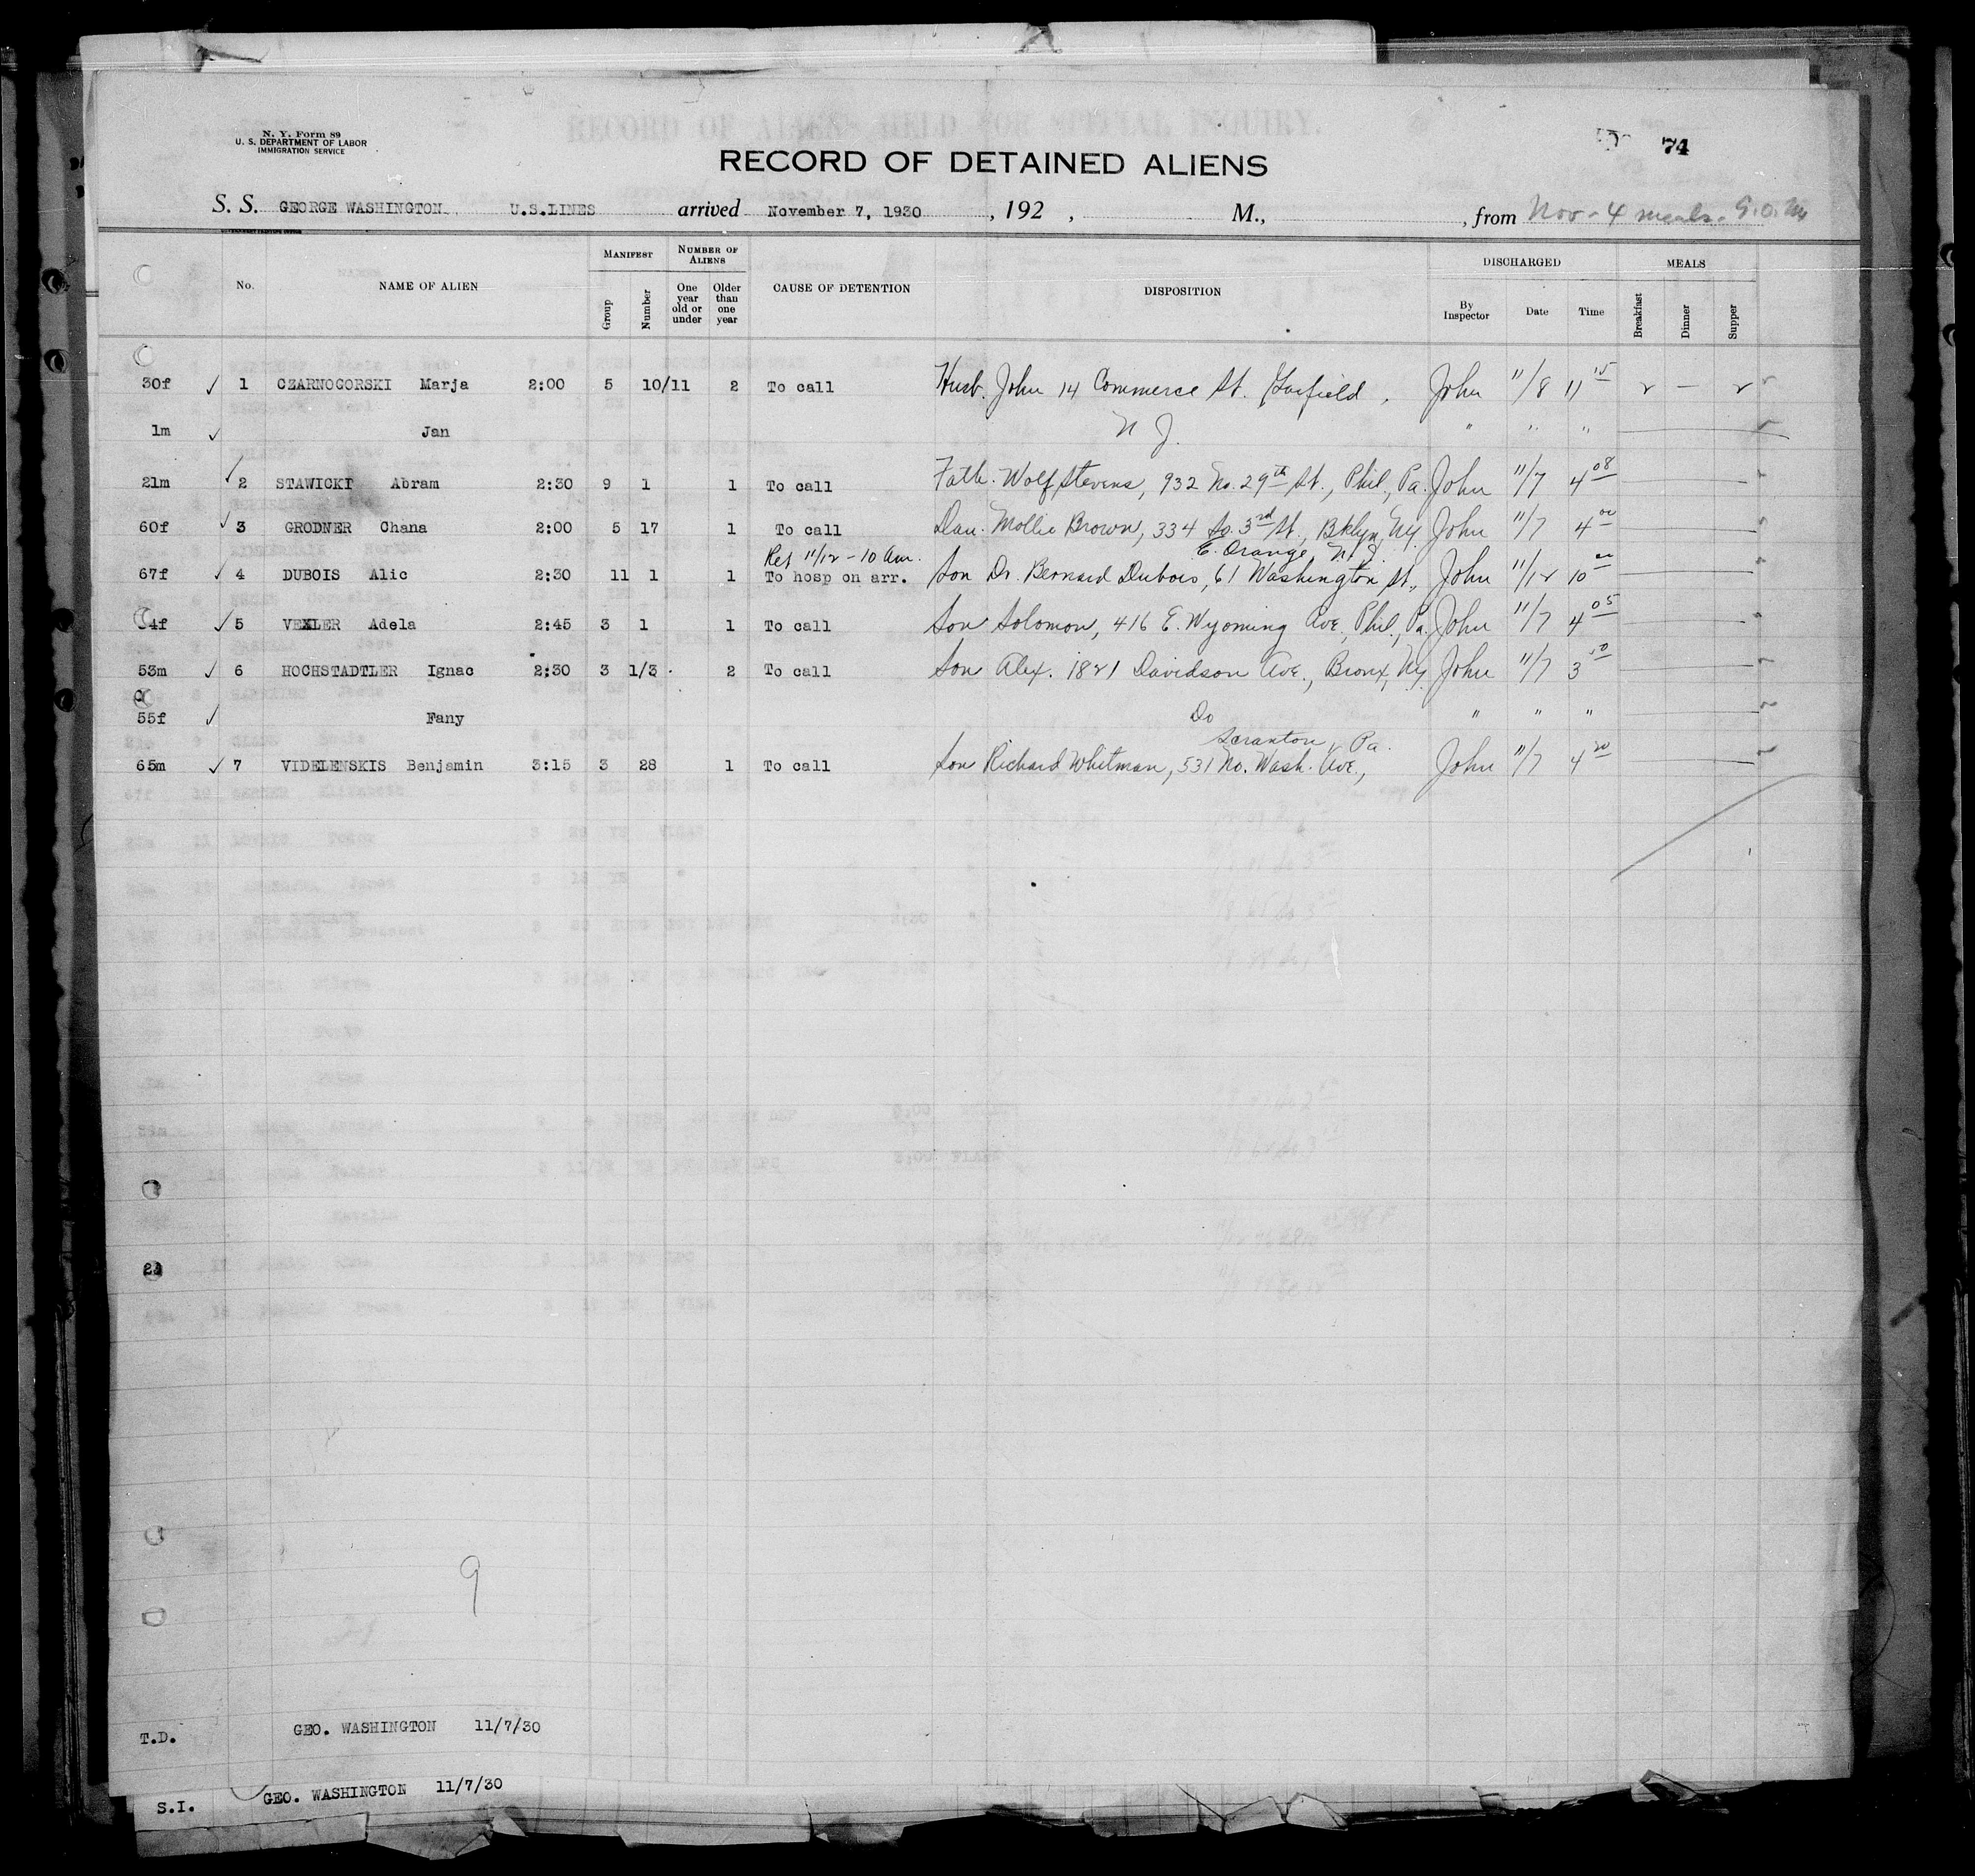 N. Y. Form 89
U. S. DEPARTMENT OF LABOR
IMMIGRATION SERVICE
RECORD OF ALIENS HELD FOR SPECIAL INQUIRY.
74
RECORD OF DETAINED ALIENS
S. S. GEORGE WASHINGTON U.S.LINES arrived November 7, 1930, 192 , M., , from Nov - 4 meals.
No. NAME OF ALIEN MANIFEST Group Number NUMBER OF ALIENS One year old or under Older than one year CAUSE OF DETENTION DISPOSITION DISCHARGED By Inspector Date Time MEALS Breakfast Dinner Supper
30f ✓ 1 CZARNOGORSKI Marja 2:00 5 10/11 2 To call Husb. John 14 Commerce St. Garfield, John 11/8 11 15 —
1m ✓ Jan N J. " " "
21m ✓ 2 STAWICKI Abram 2:30 9 1 1 To call Fath. Wolf Stevens, 932 No. 29th St., Phil., Pa. John 11/7 4 08
60f ✓ 3 GRODNER Chana 2:00 5 17 1 To call Dau. Mollie Brown, 334 So. 3rd St., Bklyn, Ny. John 11/7 4 00
Rel 11/12 - 10 Am. E. Orange, N.J
67f ✓ 4 DUBOIS Alic 2:30 11 1 1 To hosp on arr. Son Dr. Bernard Dubois, 61 Washington St., John 11/12 10 00
4f ✓ 5 VEXLER Adela 2:45 3 1 1 To call Son Solomon, 416 E. Wyoming Ave., Phil., Pa. John 11/7 4 05
53m ✓ 6 HOCHSTADTLER Ignac 2:30 3 1/3 2 To call Son Alex. 1821 Davidson Ave., Bronx, Ny. John 11/7 3 50
55f ✓ Fany Do " " "
Scranton, Pa.
65m ✓ 7 VIDELENSKIS Benjamin 3:15 3 28 1 To call Son Richard Whitman, 531 No. Wash. Ave., John 11/7 4 20
9
T.D. GEO. WASHINGTON 11/7/30
S.I. GEO. WASHINGTON 11/7/30